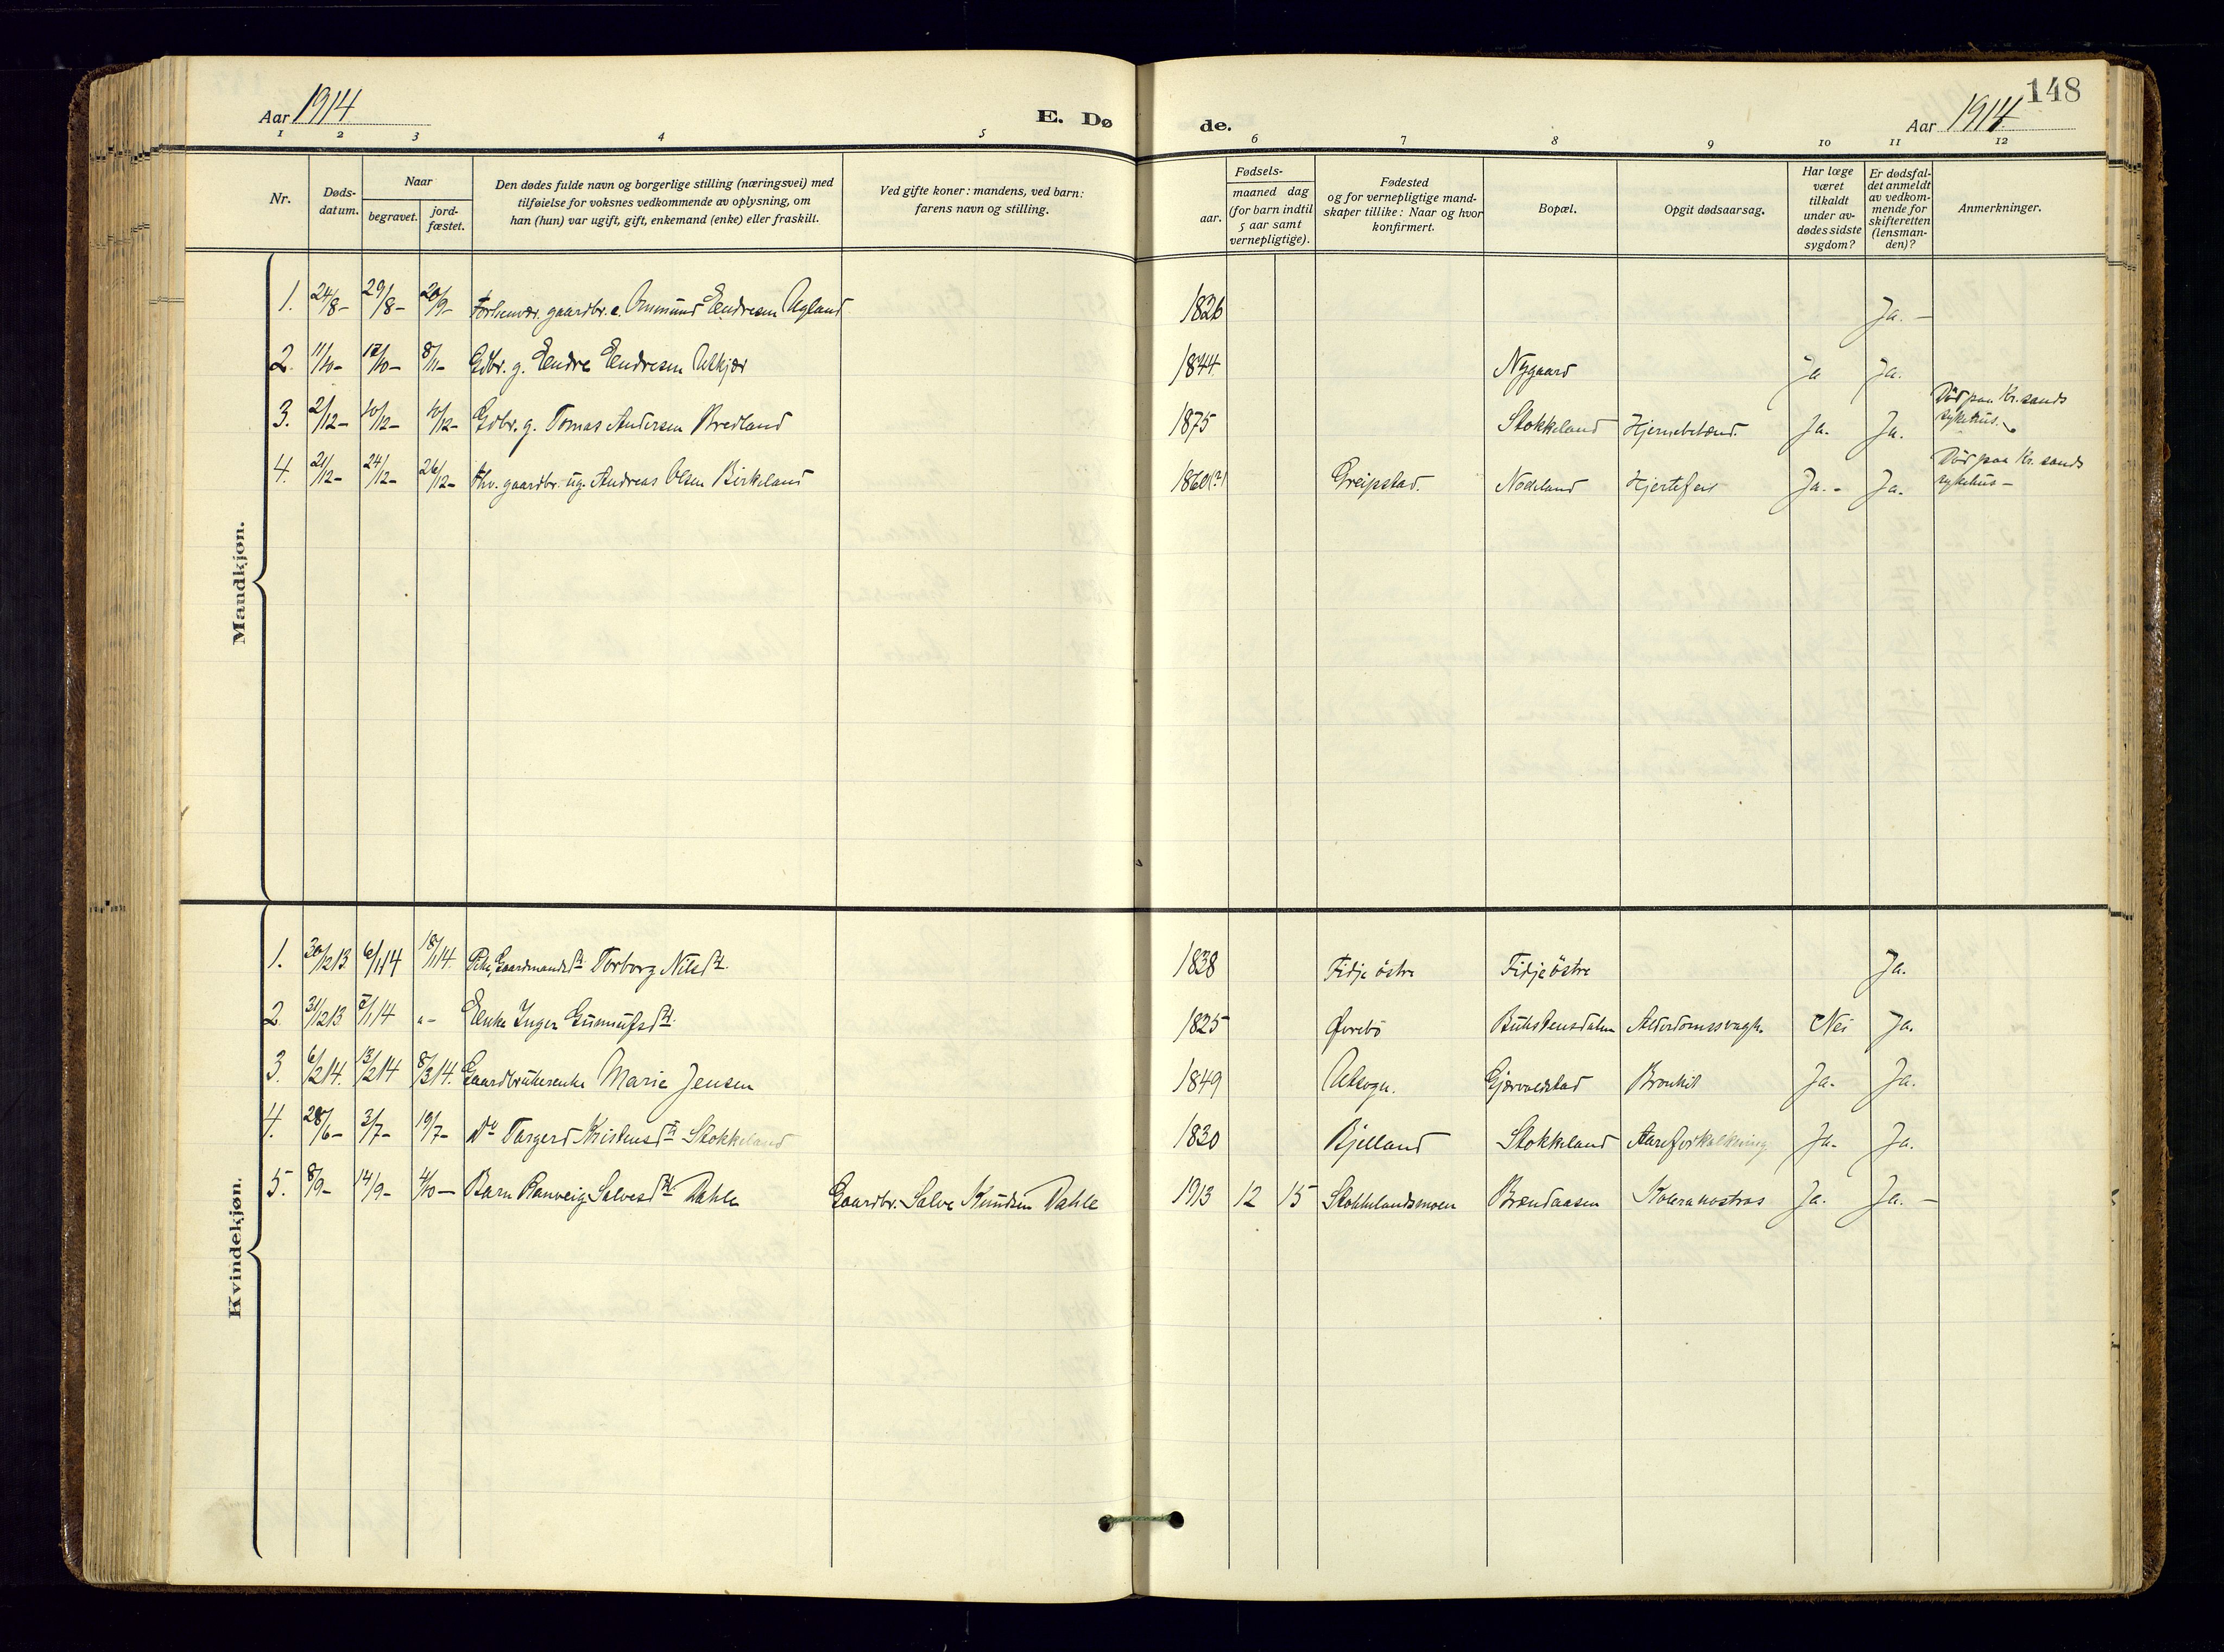 148
Aar 1914
E. Dø
de.
Aar 1914
1 2 3 4 5 6 7 8 9 10 11 12
Nr.
Døds-
datum.
Naar
begravet.
jord-
fæstet.
Den dødes fulde navn og borgerlige stilling (næringsvei) med
tilføielse for voksnes vedkommende av oplysning, om
han (hun) var ugift, gift, enkemand (enke) eller fraskilt.
Ved gifte koner: mandens, ved barn:
farens navn og stilling.
Fødsels-
aar.
maaned dag
(for barn indtil
5 aar samt
vernepligtige).
Fødested
og for vernepligtige mand-
skaper tillike: Naar og hvor
konfirmert.
Bopæl.
Opgit dødsaarsag.
Har læge
været
tilkaldt
under av-
dødes sidste
sygdom?
Er dødsfal-
det anmeldt
av vedkom-
mende for
skifteretten
(lensman-
den)?
Anmerkninger.
Mandkjøn.
1. 24/8- 29/8- 20/9- Forhenvær. gaardbr. e. Ommund Eendresen Aagland 1826 Ja. -
2. 11/10- 17/10- 8/11- Gdbr. g. Eendre Eendresen Utkjær 1844 Nygaard Ja Ja.
3. 2/12- 10/12- 10/12- Gdbr. g. Tomas Andersen Bredland 1875 Stokkeland Hjernebetænd. Ja. Ja. Död paa Kr.sands
sykehus.
4. 21/12- 24/12- 26/12- Fhv. gaardbr. ug. Andreas Olsen Birkeland 1860(?) Greipstad. Nodeland Hjertefeil Ja. - Ja. Död paa Kr.sands
sykehus -
Kvindekjøn.
1. 30/12 13. 6/1 14 18/1 14. Pike, Gaardmandsdtr Torborg Nilsdtr. 1838 Fidje östre Fidje östre Ja.
2. 31/12 13 7/1 14 "- Eenke Inger Gunnufsdtr. 1825 Øvrebö Alderdomssvagh. Nei Ja.
3. 6/2 14. 13/2 14 8/3 14. Gaardbrukerenke Marie Jensen 1849 Utsogn. Bronkit Ja. Ja.
4. 28/6- 3/7- 19/7- Do Torgerd Kristensdtr Stokkeland 1830 Bjelland Stokkeland Aareforkalkning Ja. Ja.
5. 8/9- 14/9- 4/10- Barn Ranveig Salvesdtr. Dahle Gaardbr. Salve Knudsen Dahle 1913 12 15 Stokkelandsmoen Brændaasen Kolera nostras Ja. Ja. -